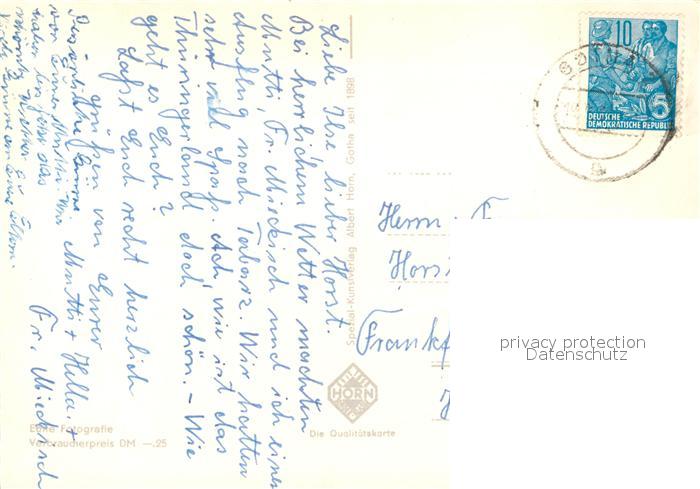 Liebe Ilse lieber Horst.
Bei herrlichem Wetter machten
Mutti, Fr. Mieckisch und ich einen
Ausflug nach Tabarz. Wir hatten
sehr viel Spaß. Ach, wie ist das
Thüringerland doch schön. – Wie
geht es Euch?
Laßt Euch recht herzlich
grüßen von Eurer
Mutti + Hella. +
Fr. Mieckisch
von
haben
das
Spezial-Kunstverlag Albert Horn, Gotha seit 1898
Echte Fotografie
Verbraucherpreis DM —.25
HORN
Die Qualitätskarte
10
5
DEUTSCHE
DEMOKRATISCHE REPUBLIK
GOTHA
Herrn
Horst
Frankf
privacy protection
Datenschutz